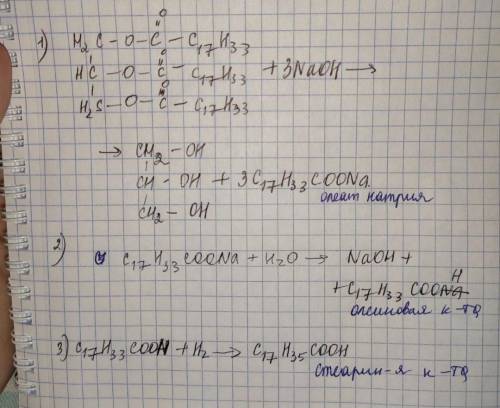 O
1) H₂C – O – C – C₁₇H₃₃
O
HC – O – C – C₁₇H₃₃ + 3NaOH →
O
H₂S – O – C – C₁₇H₃₃
→ CH₂ – OH
CH – OH + 3 C₁₇H₃₃COONa
олеат натрия
CH₂ – OH
2) C₁₇H₃₃COONa + H₂O → NaOH +
H
+ C₁₇H₃₃ COONa
олеиновая к-та
3) C₁₇H₃₃COOH + H₂ → C₁₇H₃₅COOH
стеарин-я к-та